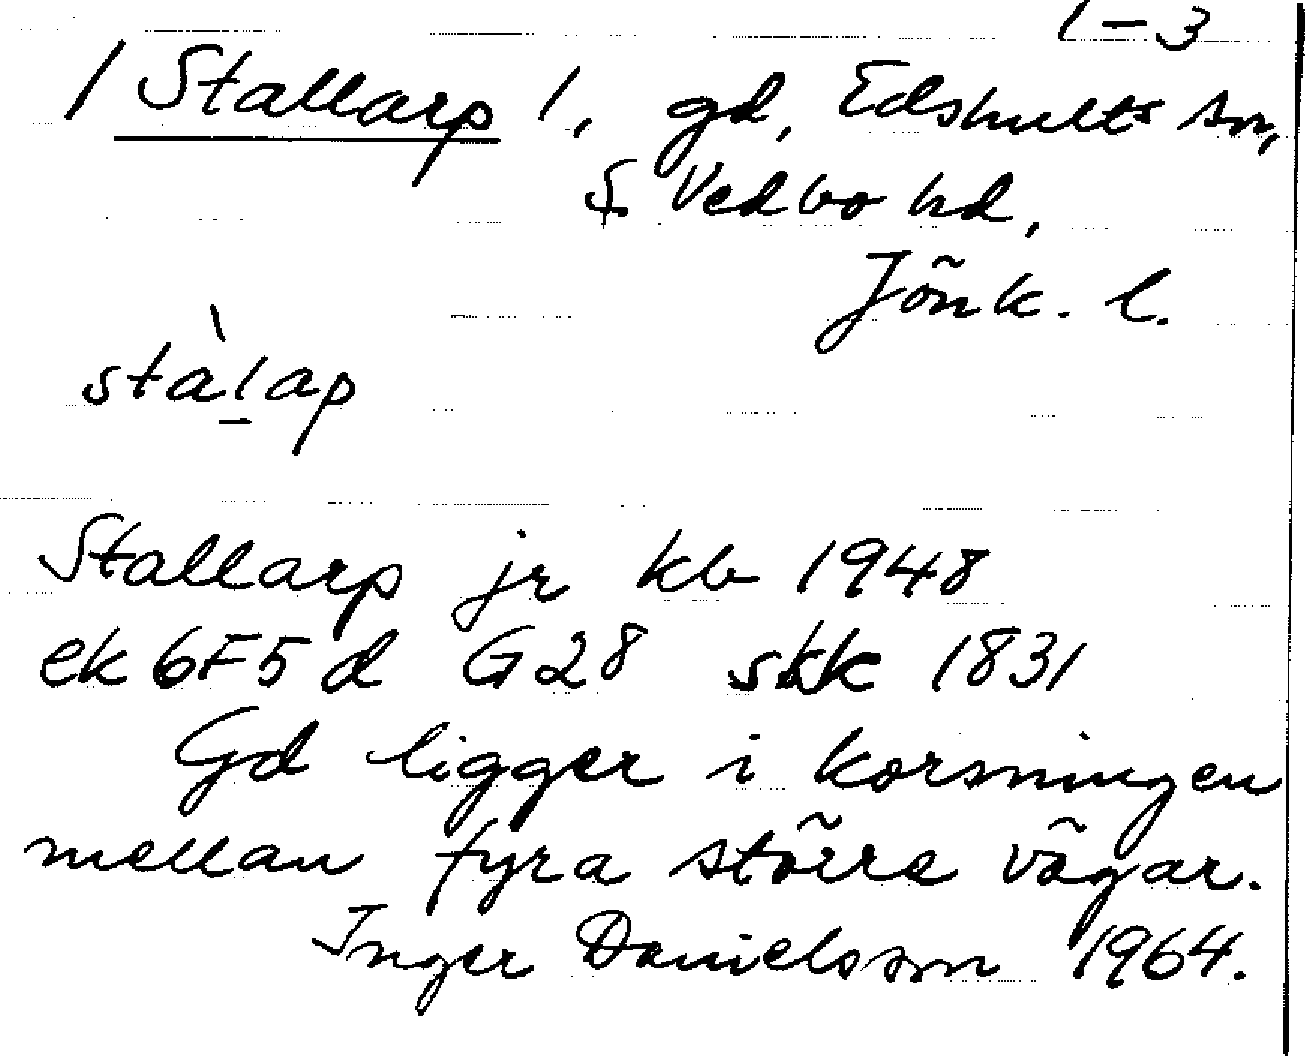 1-3
/ Stallarp /, gd, Edshults sn,
S. Vedbo hd,
Jönk. l.
stàlap
Stallarp jr kb 1948
ek 6F5d G28 skk 1831
Gd ligger i korsningen
mellan fyra större vägar.
Inger Danielsson 1964.